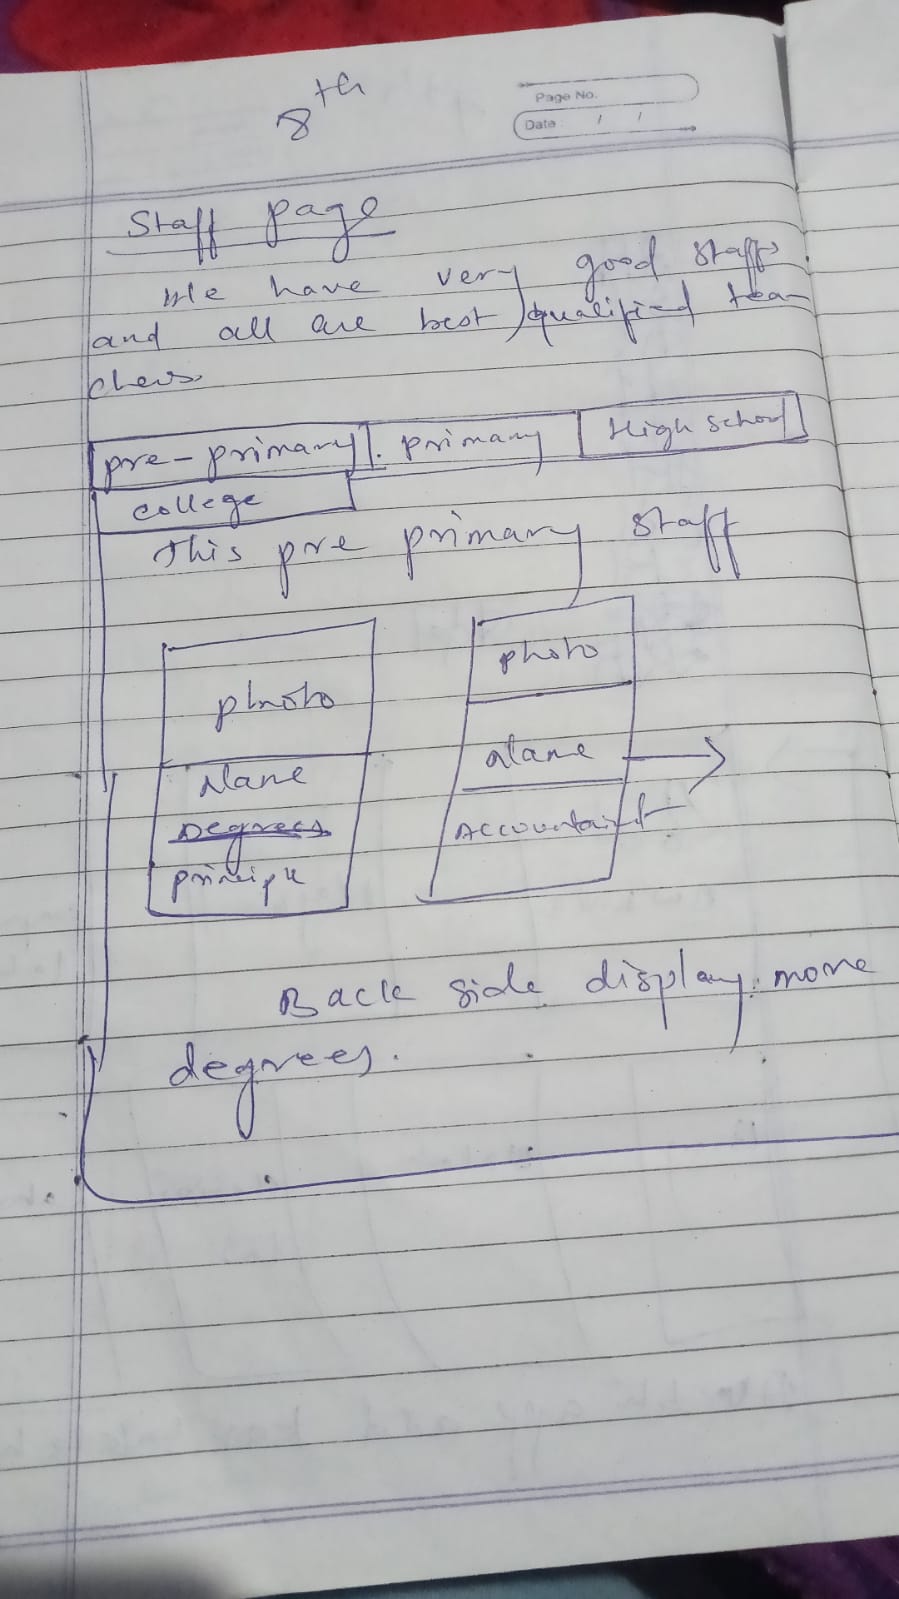 8th
Page No.
Date / /
Staff page
We have very good staffs
and all are best qualified tea
chers.
pre-primary primary High school
college
this pre primary staff
photo photo
Name Name
Degrees
Accountant
Back side display more
degrees.